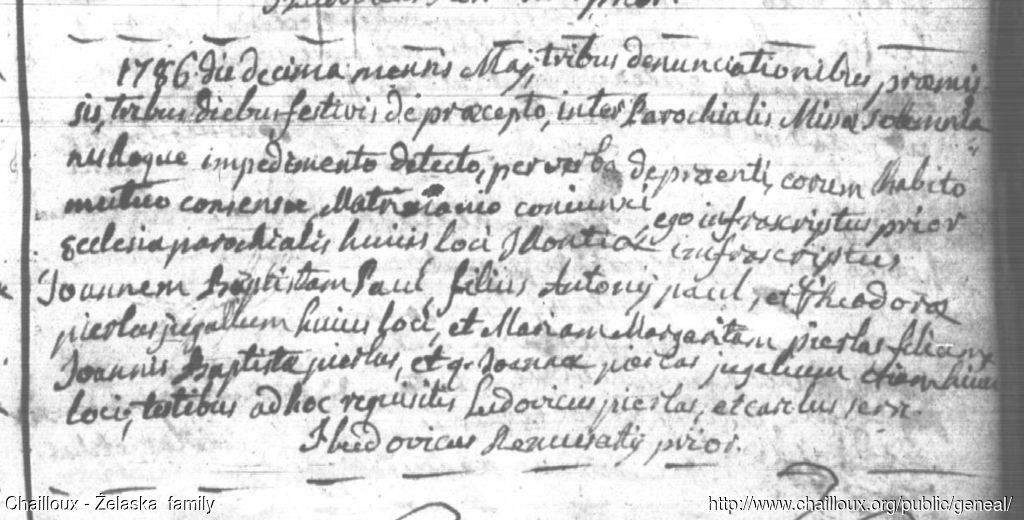 prior.
1786 die decima mensis Maij, tribus denunciationibus præmis-
sis, tribus diebus festivis de præcepto, inter Parochialis Missæ solemnia
nulloque impedimento detecto, per verba de præsenti, eorum habito
mutuo consensu Matrimonio coniunxi ego infrascriptus prior
ecclesiæ parochialis huius loci infrascriptus
Joannem Baptistam Paul filius Antonij paul, et Theodoræ
pierlas jugallum huius loci, et Mariam Margaritam pierlas filiam
Joannis Baptistæ pierlas, et q. Joannæ pierlas jugalium etiam huius
loci, testibus ad hoc requisitis Ludovicus pierlas, et carolus
Ludovicus prior.
Chailloux - Żelaska family
http://www.chailloux.org/public/geneal/